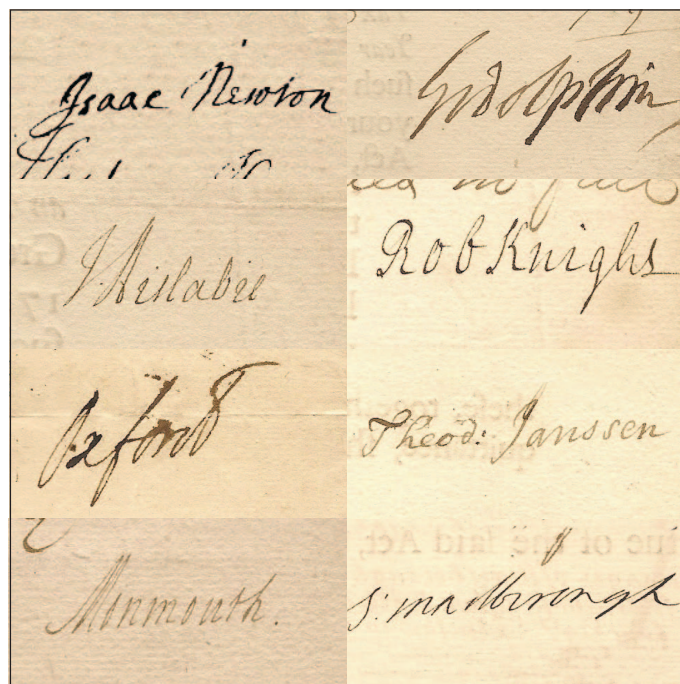 Isaac Newton
Godolphin
J. Aislabie
Rob Knight
Oxford
Theod: Janssen
Monmouth.
tue of the said Act,
S: Marlbrough